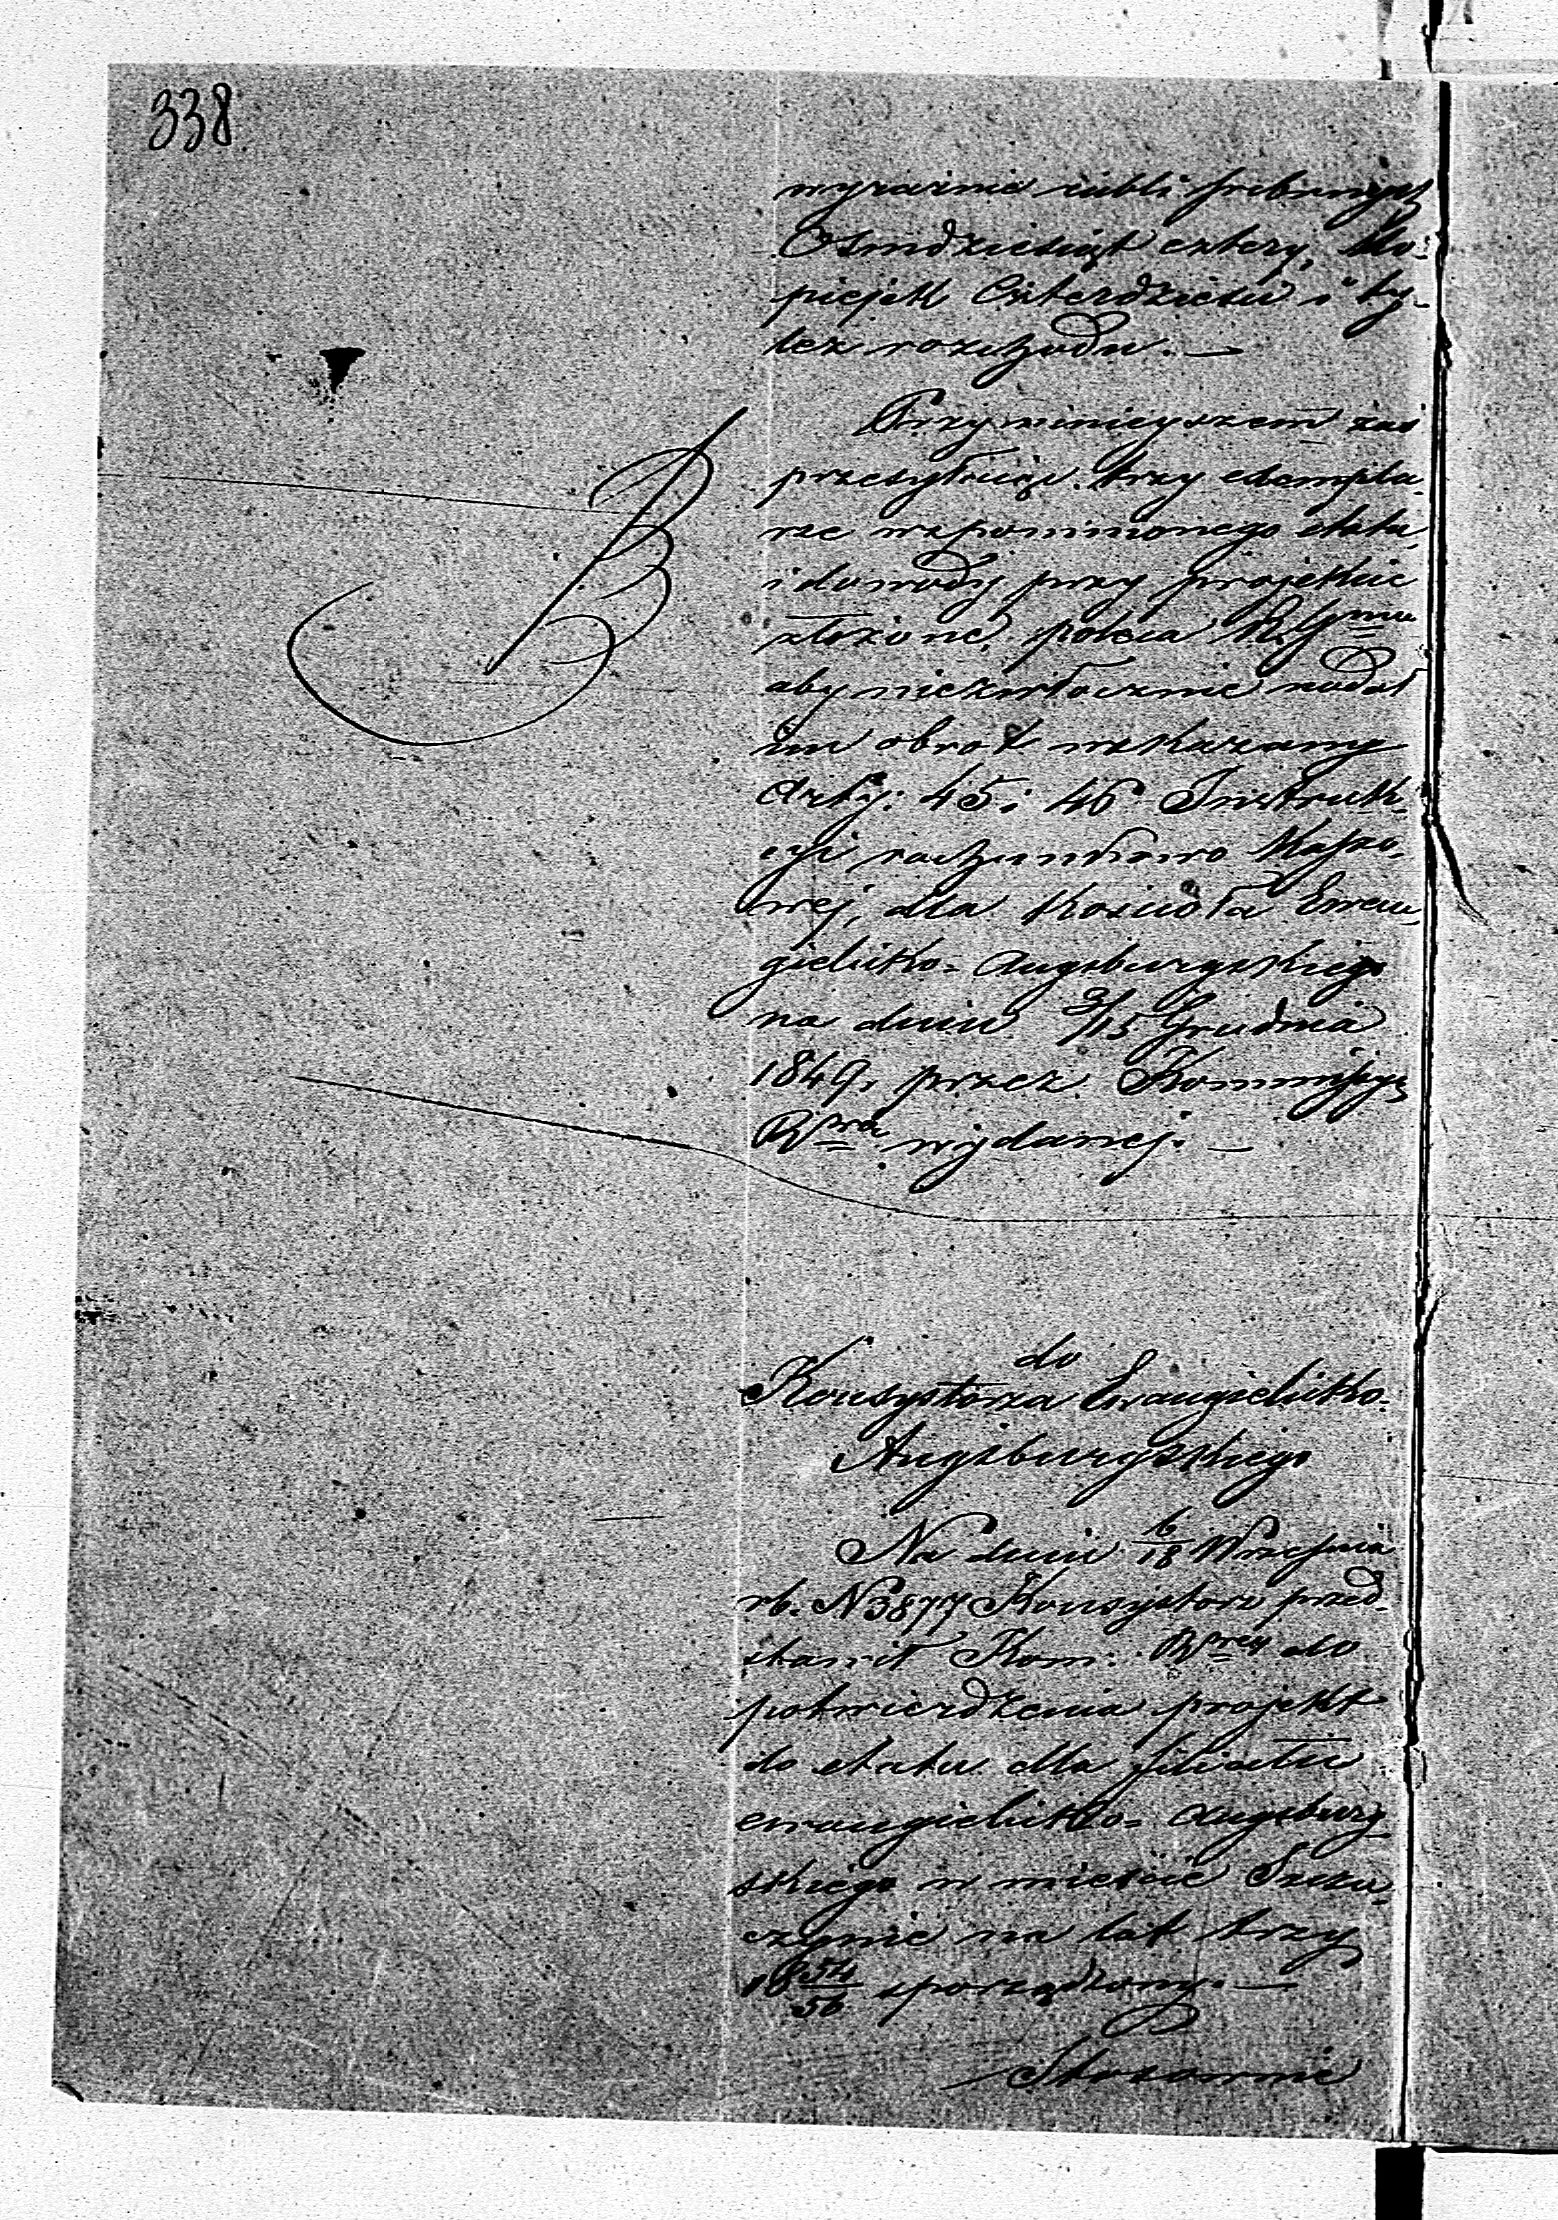 338
wyraźnie rubli srebrnych
Osmdziesiąt cztery, ko-
piejek Czterdzieści i ty-
leż rozchodu. —
Przy niniejszem zaś
przesyłając trzy exempla-
rze wspomnionego etatu
i dowody przy projekcie
złożone, poleca R. Gmu
aby niezwłocznie nadał
im obrot wskazany
Artty: 45 i 46 Instruk-
cyi rachunkowo Kasso-
wej, dla Kościoła Ewan-
gielicko-Augsburgskiego
na dniu 3/15 Grudnia
1849. przez Kommissyę
Rową wydanej. —
do
Konsystorza Ewangielicko-
Augsburgskiego
Na dniu 6/18 Września
rb. N 3877 Konsystorz przed-
stawił Kom: Rwey do
potwierdzenia projekt
do etatu dla filiału
ewangielicko-Augsburg-
skiego w mieście Szczu-
czynie na lat trzy
18 54/56 sporządzony. —
Stosownie